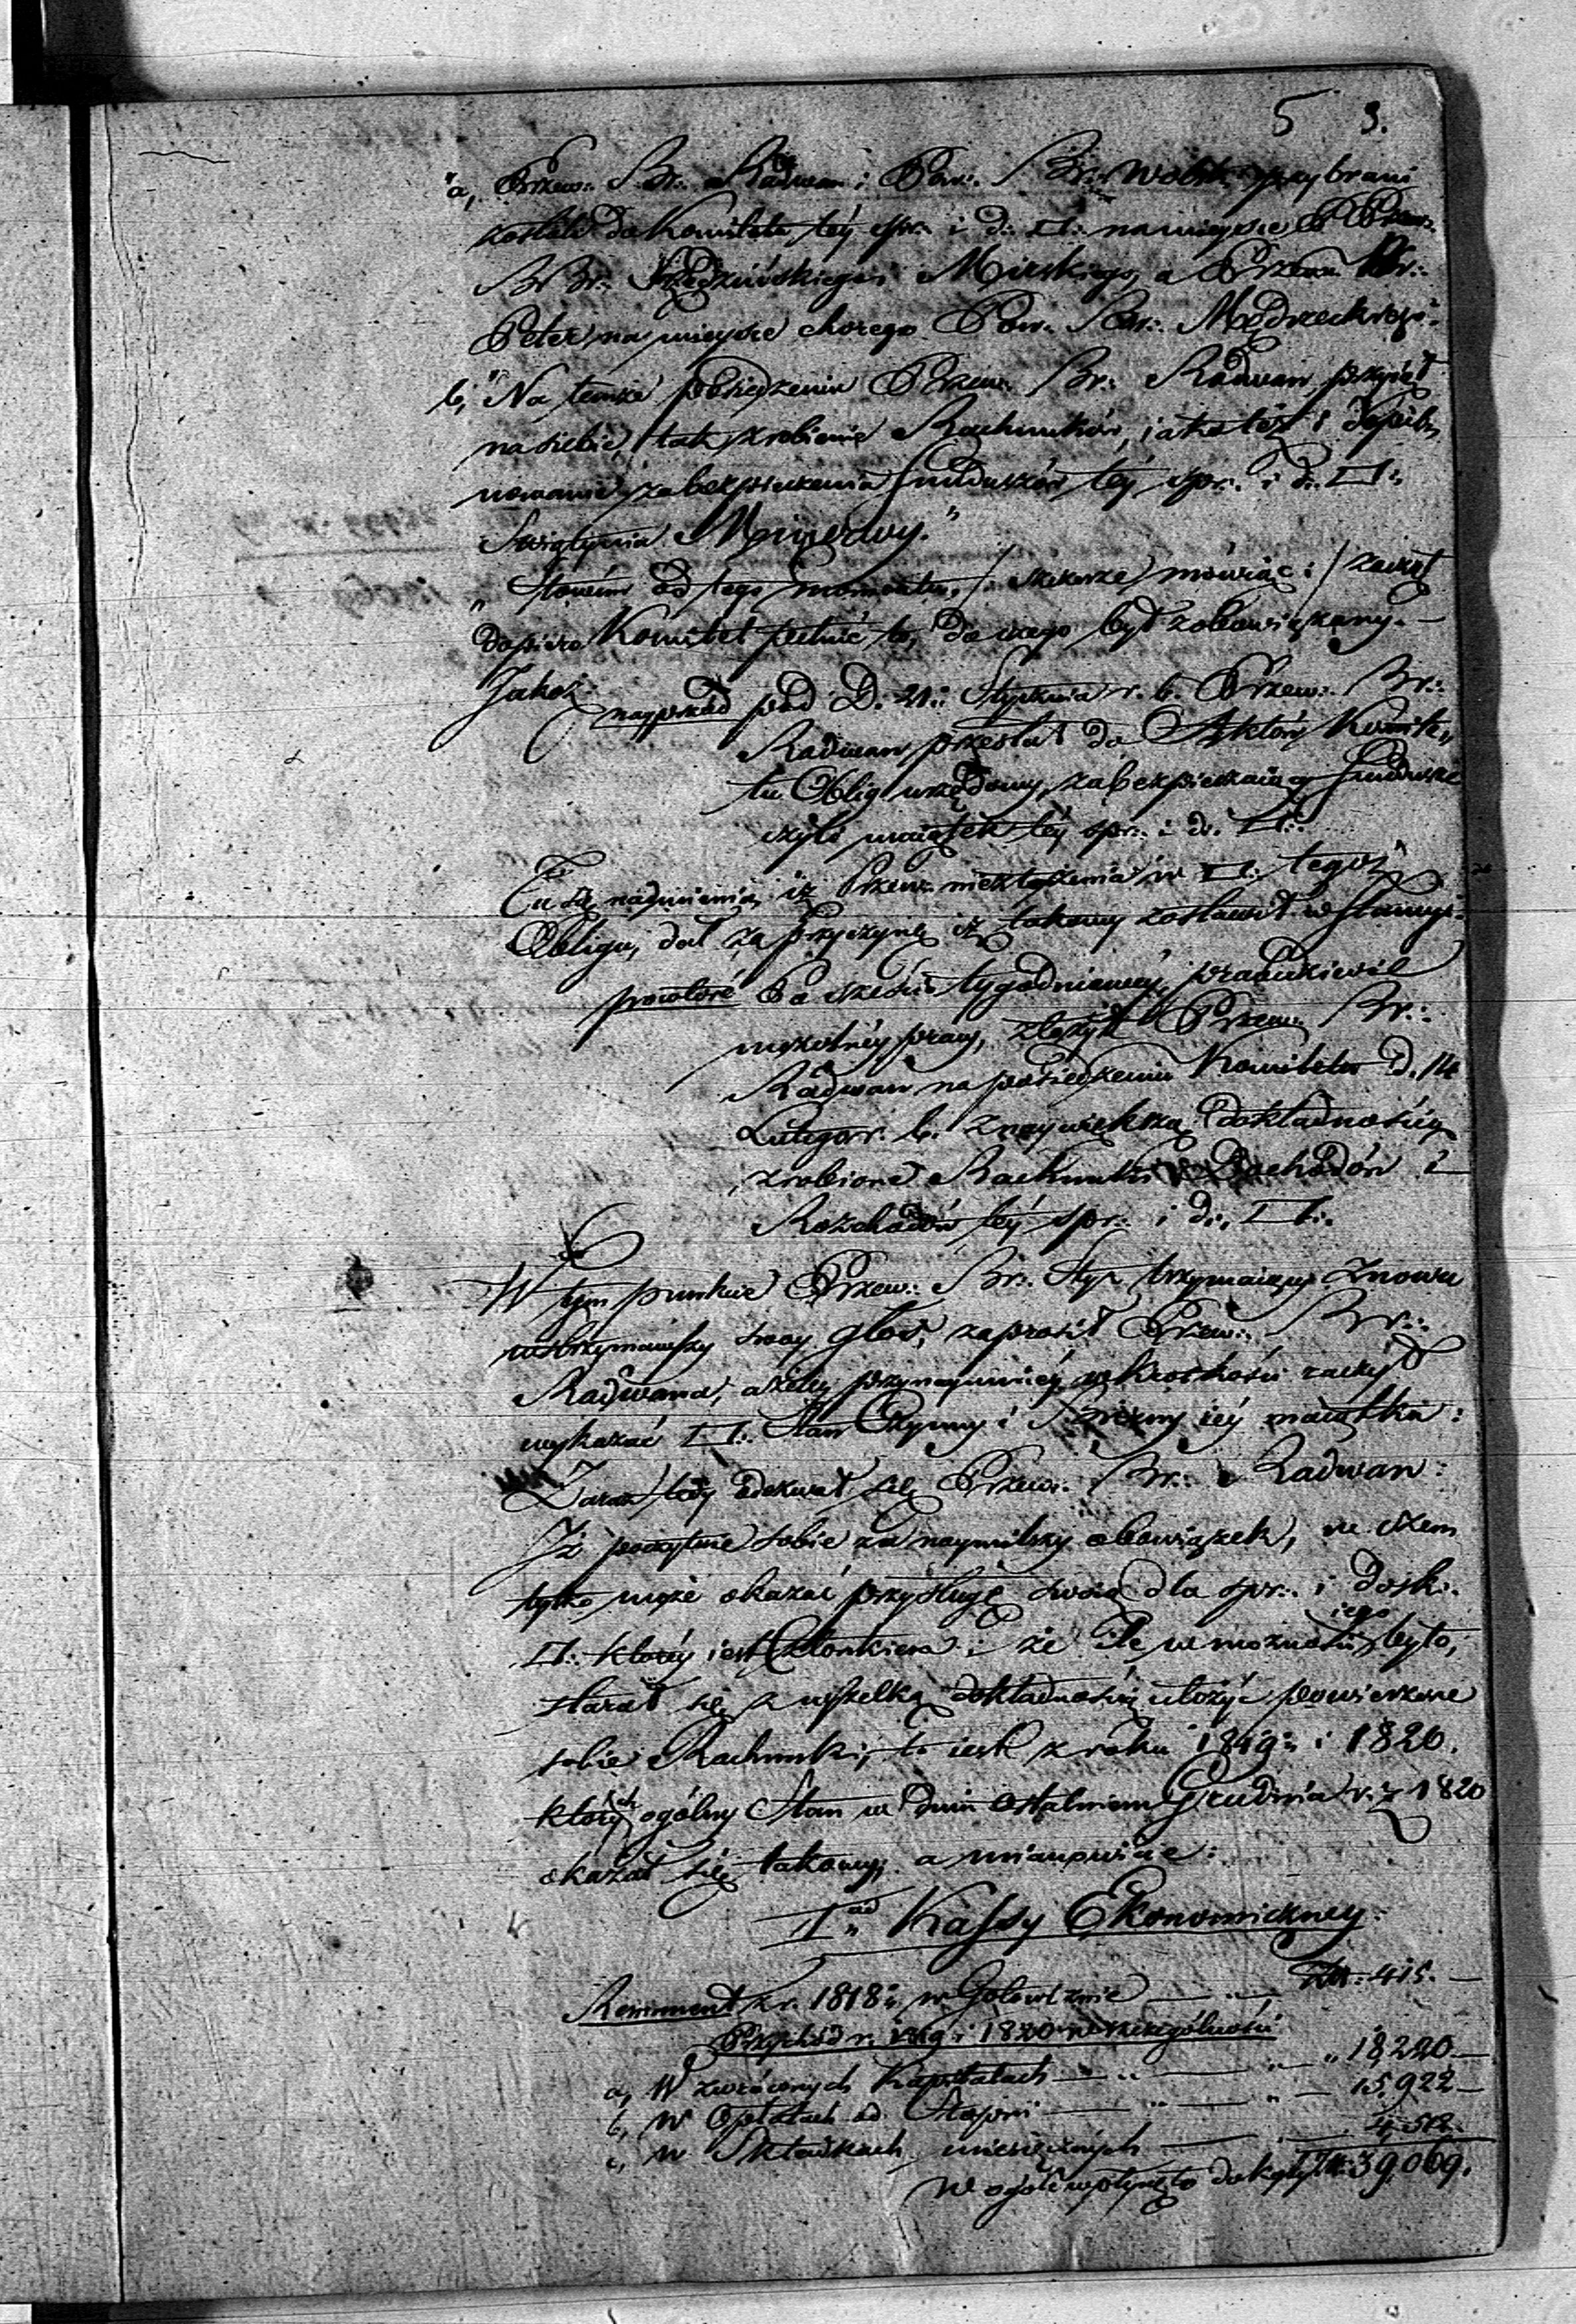 5 3.
"a, Przew:. Br:. Radwan i Pow:. Br:. Wolski przybrani
zostali do Komitetu téy spr:. i d:. □:. na mieysce PPrzew:.
BBr:. Mirskiego, a Przew. Br:.
Peter, na mieysce chorego Pow:. Br:. Mędrzeckiego."
b, "Na temże posiedzeniu Przew:. Br:. Radwan przyiął
na siebie, tak zrobienie Rachunków, iako też i
zabezpieczenia funduszów téy spr:. i d:. □:.
Swiątynia Minerwy."
„Słowem od tego momentu, /: szczerze mówiąc :/ zaczął
dopiero Komitet pełnić to, do czego był zobowiązany. —
Jakoż
najprzód pod D. 21:. Stycznia r. b. Przew:. Br:.
Radwan przesłał do Aktów Komite„
tu Oblig urzędowy, zabezpieczaiący fundusze
czyli maiątek téy spr:. i d:. □:.
Tu się nadmienia, iż Przew. niezłożenia w □:. tegoż
Obligu, dał za przyczynę iż takowy zostawił w
powtóre Po sześcio tygodniowéy, prawdziwie
mozolnéy pracy, złożył Przew:. Br:.
Radwan na posiedzeniu Komitetu d. 14
Lutego r. b. z naywiększą dokładnością
zrobione Rachunki Dochodów i
Rozchodów téy spr:. i d:. □:.
W tym punkcie Przew:. Br:. Styr trzymaiący znowu
wstrzymawszy swoy głos, zaprosił Przew:. Br:.
Radwana, ażeby przynaymniéy w krótkości raczył
wykazać □:. Stan Czynny i Bierny iéy maiątku:
Zaraz tedy odezwał się Przew:. Br:. Radwan:
Iż poczytuie sobie za naymilszy obowiązek, w czem
tylko może okazać przysługę swoią dla spr:. i dosk:.
□:. któréy iest Członkiem i że ile w możności iego było,
starał się z wszelką dokładnością ułożyć powierzone
sobie Rachunki, to iest z roku 1819:. i 1820.
których ogólny Stan w dniu ostatnim Grudnia r. z 1820
okazał się takowy, a mianowicie:
I:. od Kassy Ekonomiczney.
Remanent z r. 1818:. w Gotowiźnie — „ — Złt:. 415. —
Przychód r. 1819 i 1820 w szczególności
a, W zwróconych Kapitałach — „ — „ — „ 18,220 —
b, W Opłatach od Stopni — „ — „ — 15,922 —
c, W Składkach miesięcznych — 4,512.
W ogóle wpłynęło do kassy Złt. 39,069.